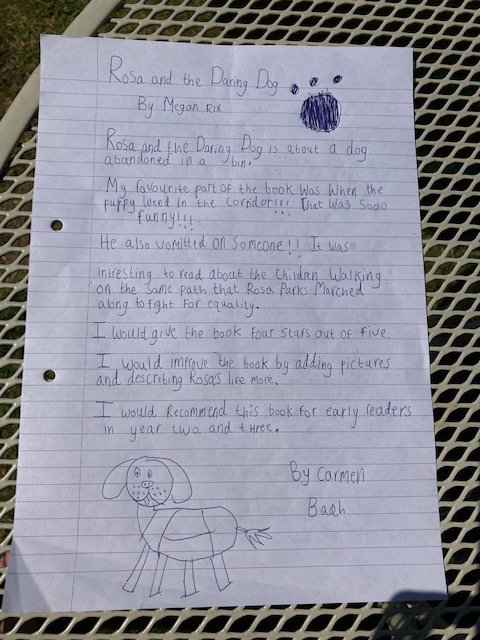 Rosa and the Daring Dog
By Megan Rix
Rosa and the Daring Dog is about a dog
abandoned in a bin.
My favourite part of the book was when the
puppy weed in the corridor!!! That was sooo
funny!!!
He also vomitted on someone!! It was
intresting to read about the children walking
on the same path that Rosa Parks Marched
along to fight for equality.
I would give the book four stars out of five.
I would improve the book by adding pictures
and describing Rosa's life more.
I would Recommend this book for early readers
in year two and three.
By Carmen